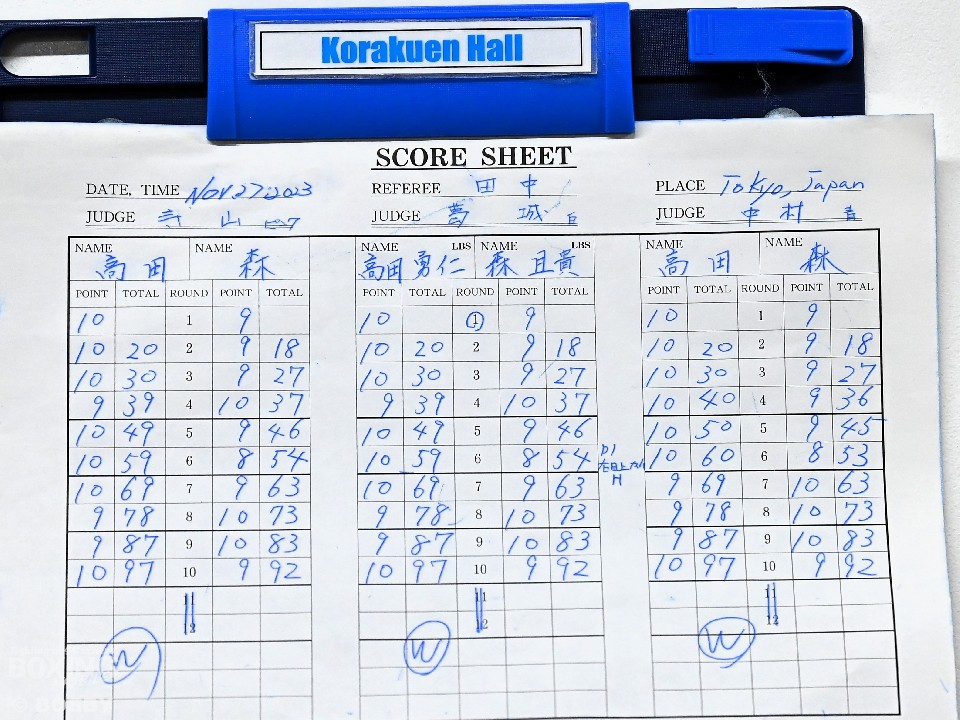 Korakuen Hall
SCORE SHEET
DATE, TIME Nov 27. 2023 REFEREE 田中 PLACE Tokyo, Japan
JUDGE JUDGE 葛城 JUDGE 中村
NAME NAME NAME LBS NAME LBS NAME NAME
高田 森 高田勇仁 森 且貴 高田 森
POINT TOTAL ROUND POINT TOTAL POINT TOTAL ROUND POINT TOTAL POINT TOTAL ROUND POINT TOTAL
10 1 9 10 1 9 10 1 9
10 20 2 9 18 10 20 2 9 18 10 20 2 9 18
10 30 3 9 27 10 30 3 9 27 10 30 3 9 27
9 39 4 10 37 9 39 4 10 37 10 40 4 9 36
10 49 5 9 46 10 49 5 9 46 10 50 5 9 45
10 59 6 8 54 10 59 6 8 54 10 60 6 8 53
10 69 7 9 63 10 69 7 9 63 H 9 69 7 10 63
9 78 8 10 73 9 78 8 10 73 9 78 8 10 73
9 87 9 10 83 9 87 9 10 83 9 87 9 10 83
10 97 10 9 92 10 97 10 9 92 10 97 10 9 92
11 11 11
12 12 12
W W W